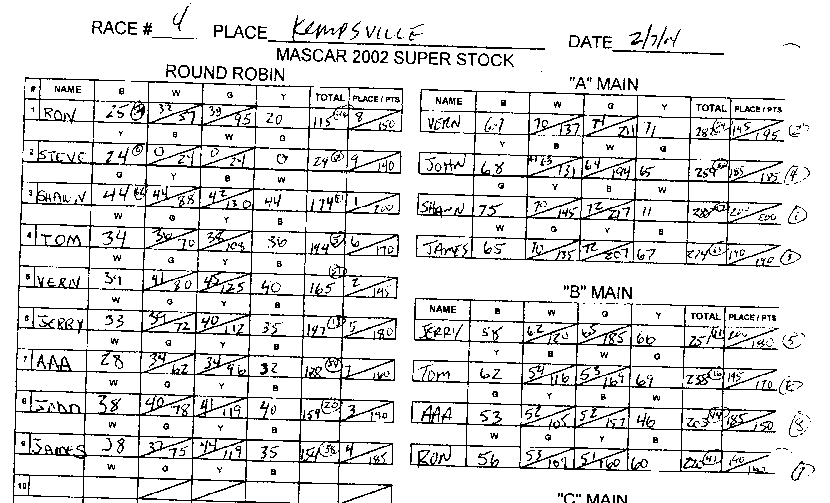 RACE # 4 PLACE KEMPSVILLE DATE 2/7/04
MASCAR 2002 SUPER STOCK
ROUND ROBIN
# NAME B W G Y TOTAL PLACE / PTS
1 RON 25 32/57 39/95 20 115 8/150
Y B W G
2 STEVE 24 0/24 0/24 0 24 9/140
G Y B W
3 SHAWN 44 44/88 42/130 44 174 1/200
W G Y B
4 TOM 34 36/70 38/108 36 144 6/170
B W G Y
5 VERN 39 41/80 45/125 40 165 2/195
W G Y B
6 JERRY 33 39/72 40/112 35 147 5/180
W G Y B
7 AAA 28 34/62 34/96 32 128 7/160
W G Y B
8 John 38 40/78 41/119 40 159 3/190
W G Y B
9 JAMES 38 37/75 44/119 35 154 4/185
W G Y B
10
"A" MAIN
NAME B W G Y TOTAL PLACE / PTS
VERN 67 70/137 74/211 71 282 195/195
Y B W G
JOHN 68 63/131 64/194 65 259 185/185
G Y B W
SHAWN 75 70/145 72/217 71 288 200/200
W G Y B
JAMES 65 70/135 72/207 67 274 190/190
"B" MAIN
NAME B W G Y TOTAL PLACE / PTS
JERRY 58 62/120 65/185 66 251 200/180
Y B W G
Tom 62 54/116 53/169 69 238 195/170
G Y B W
AAA 53 52/105 52/157 46 203 185/150
W G Y B
RON 56 53/109 51/160 60 220 190/160
"C" MAIN